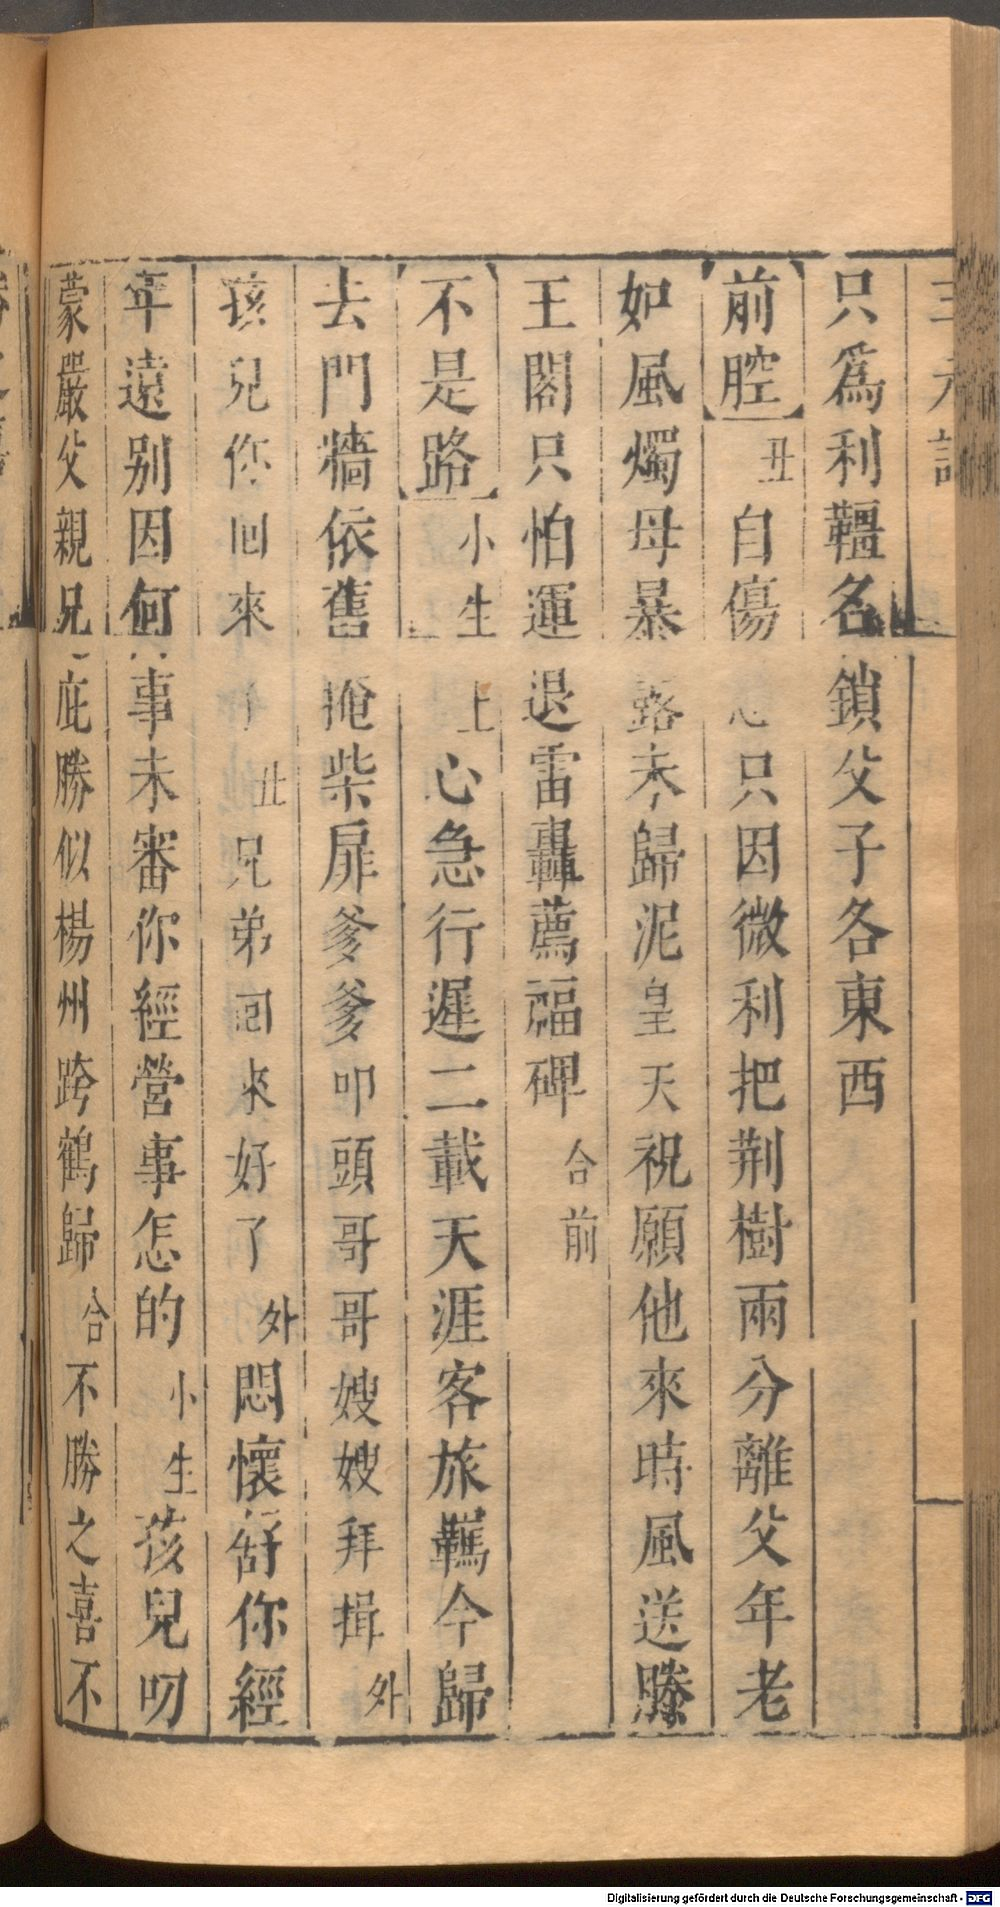 三元記
只爲利韁名鎖父子各東西
【前腔】丑自傷悲只因微利把荆樹兩分離父年老
如風燭母暴露未歸泥皇天祝願他來時風送滕
王閣只怕運退雷轟薦福碑合前
【不是路】小生上心急行遲二載天涯客旅羈今歸
去門牆依舊掩柴扉爹爹叩頭哥哥嫂嫂拜揖外
孩兒你囘來了丑兄弟囘來好了外悶懷舒你經
年遠别因何事未審你經營事怎的小生孩兒叨
蒙嚴父親兄庇勝似楊州跨鶴歸合不勝之喜不
Digitalisierung gefördert durch die Deutsche Forschungsgemeinschaft - DFG